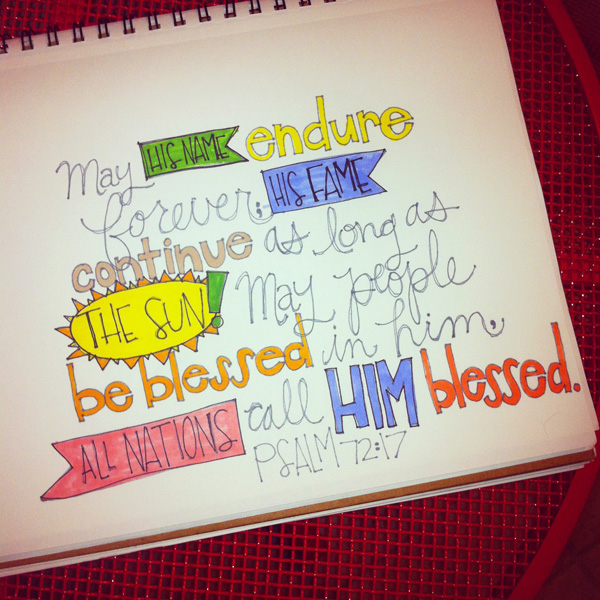 May HIS NAME endure
forever; HIS FAME
continue as long as
THE SUN! May people
be blessed in him,
ALL NATIONS call HIM blessed.
PSALM 72:17